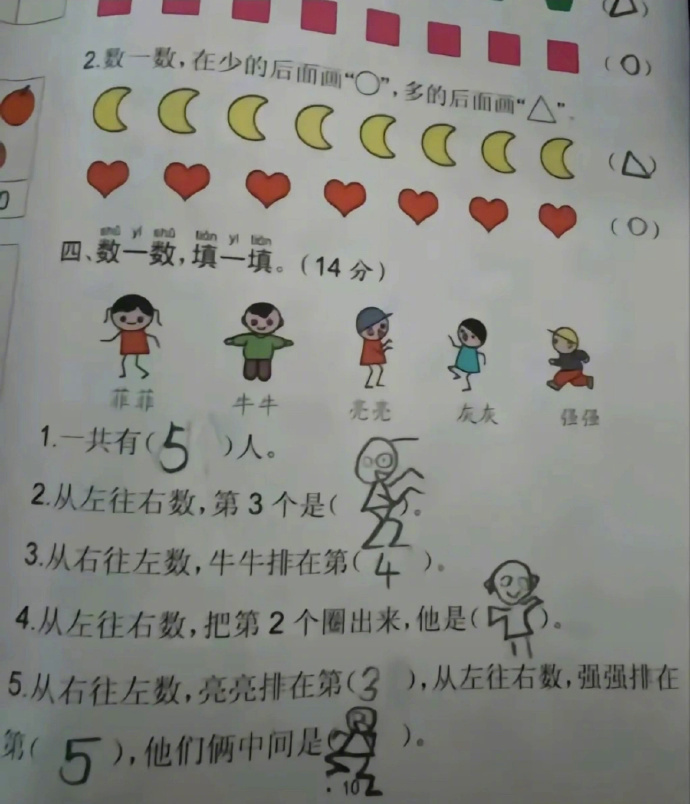 (△)
(○)
2.数一数,在少的后面画“○”,多的后面画“△”。
(△)
(○)
shǔ yì shǔ tián yì tián
四、数一数,填一填。(14分)
菲菲 牛牛 亮亮 灰灰 强强
1.一共有(5)人。
2.从左往右数,第3个是( )。
3.从右往左数,牛牛排在第(4)。
4.从左往右数,把第2个圈出来,他是( )。
5.从右往左数,亮亮排在第(3),从左往右数,强强排在
第(5),他们俩中间是( )。
· 10